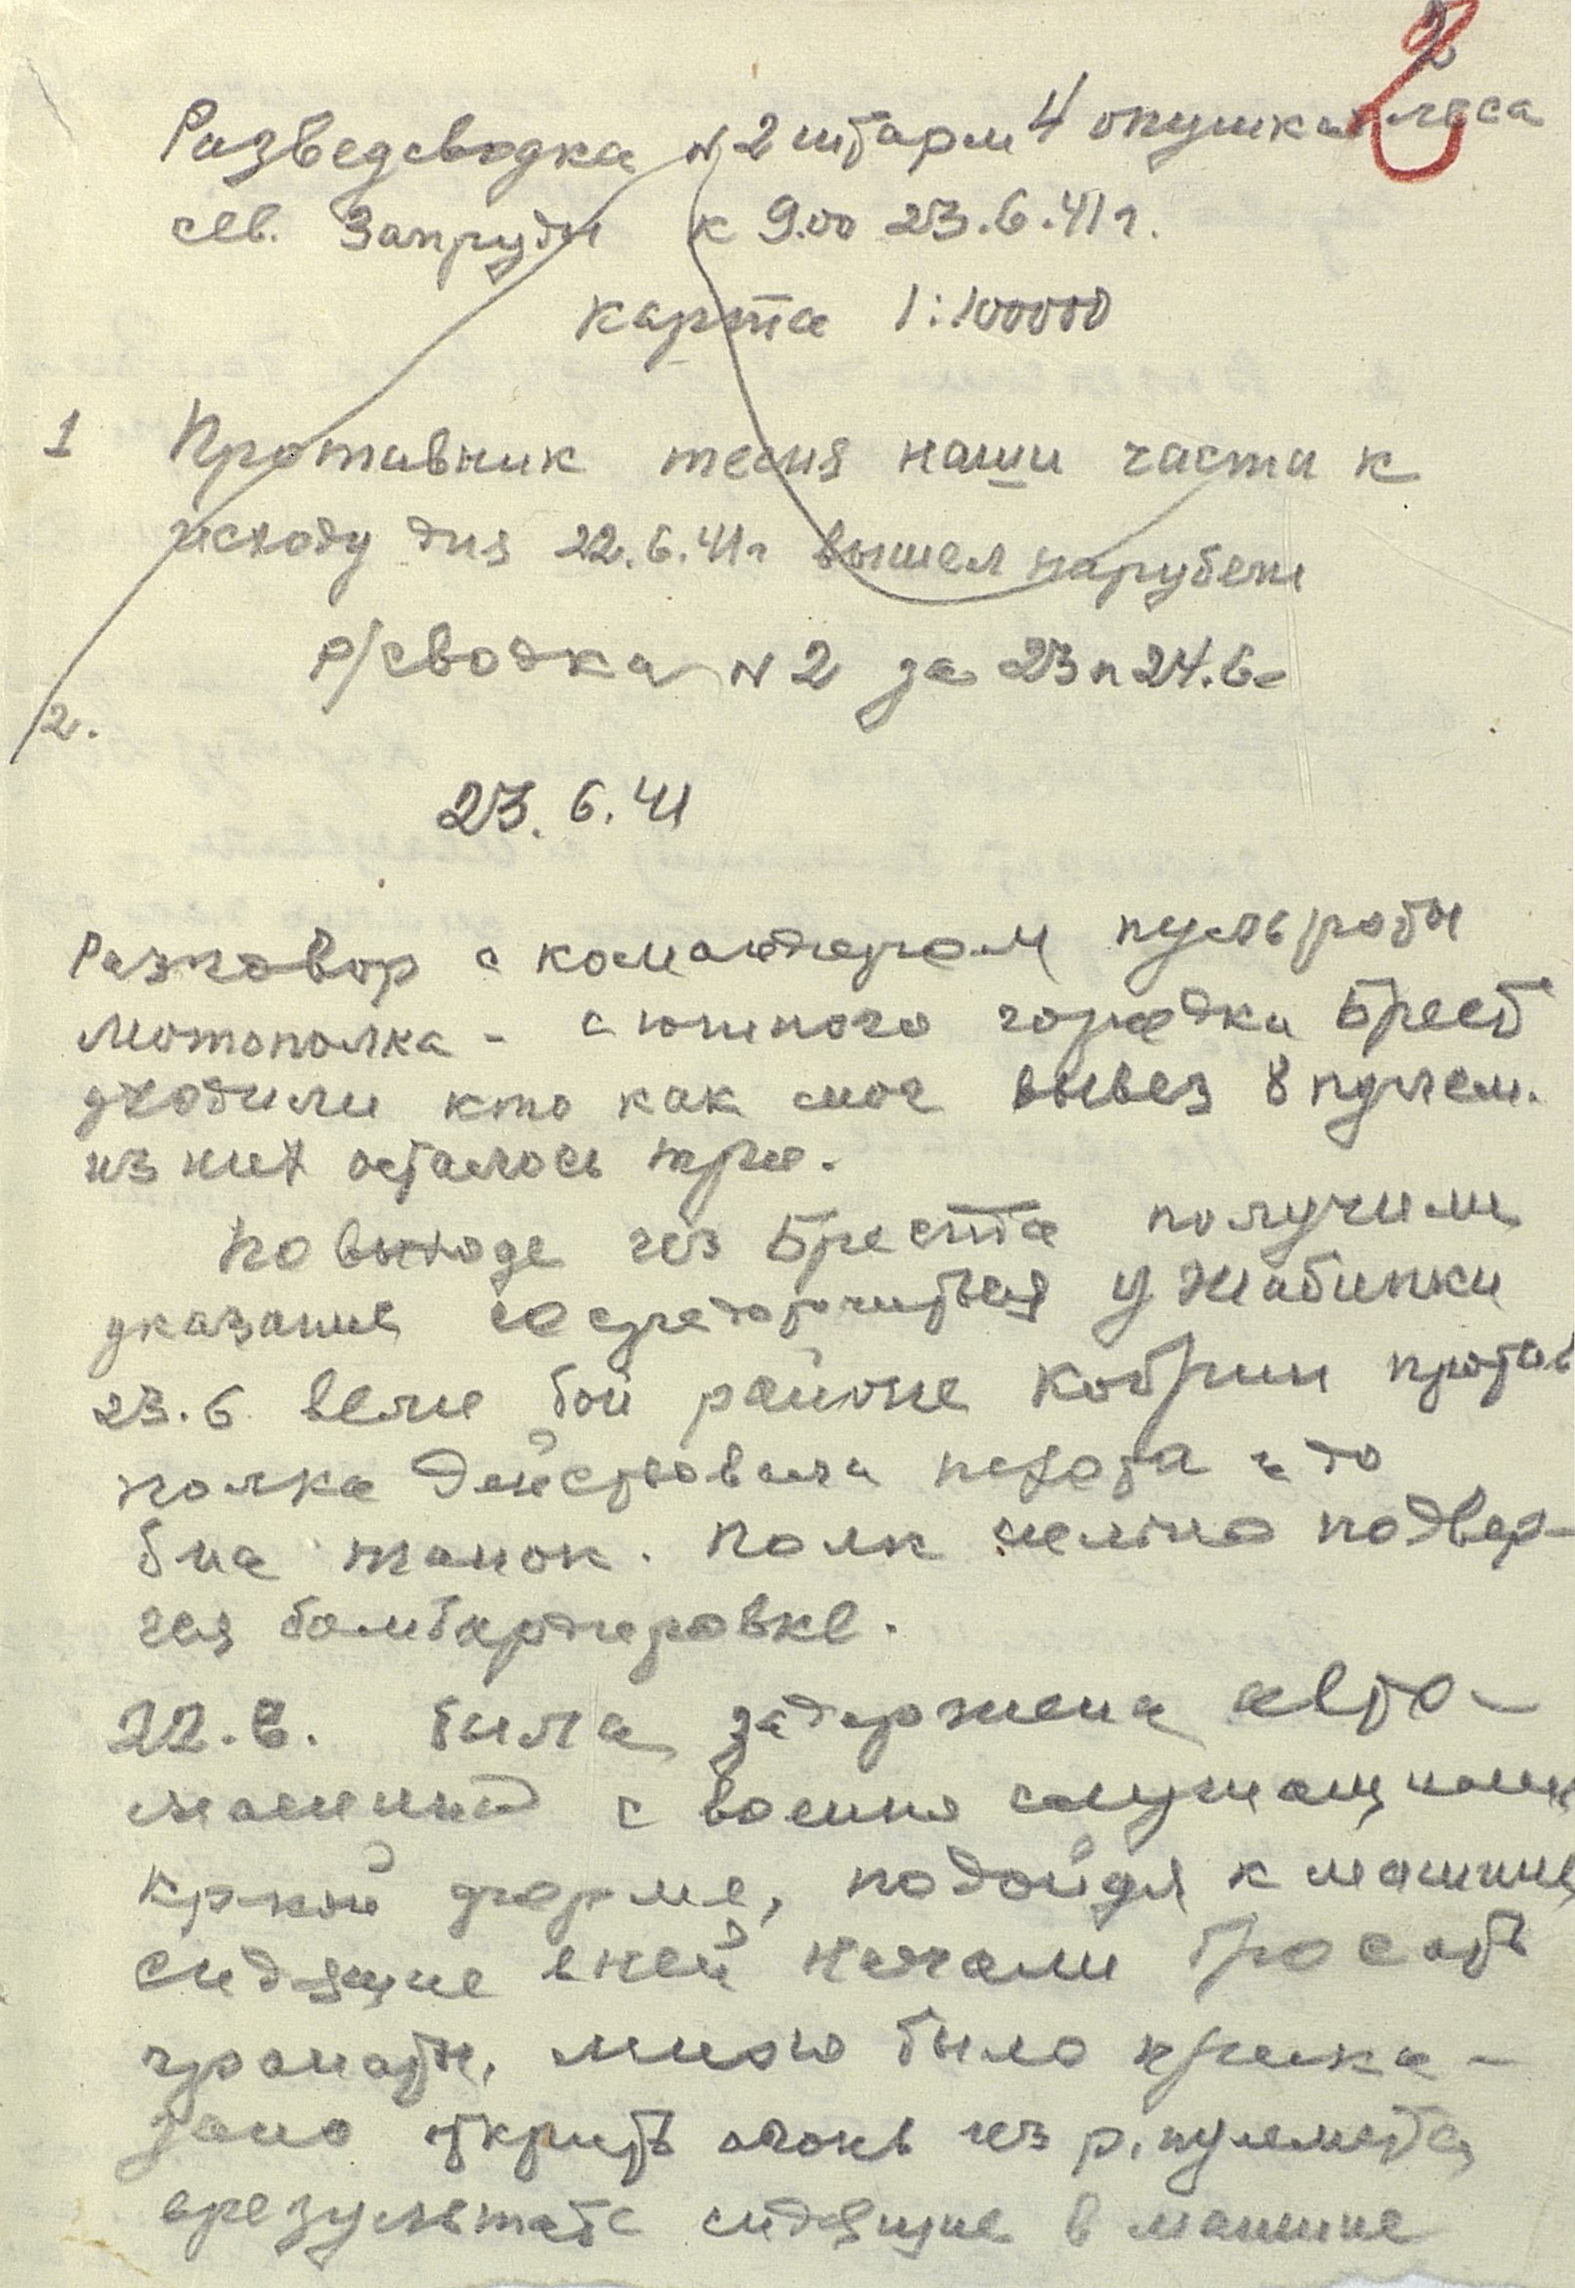 2
Разведсводка N 2 штарм 4 опушка леса
сев. Запруды к 9.00 23.6.41 г.
карта 1:100000
1 Противник тесня наши части к
исходу дня 22.6.41 г вышел на рубеж
р/сводка N 2 за 23 и 24.6
2.
23.6.41
Разговор с командером пульроты
мотополка - с южного городка Брест
уходили кто как смог вывез 8 пулем.
из них осталось три.
По выходе из Бреста получили
указание сосредоточиться у Жабинки
23.6 вели бой районе Кобрин против
полка действовала пехота и до
б-на танок. Полк сильно подвер-
гся бомбардировке.
22.6. была задержена авто-
машина с военно служащими
кркой форме, подойдя к машине
сидящие в ней начали бросать
гранаты, мною было прика-
зано открыть огонь из р. пулемета,
в результате сидящие в машине